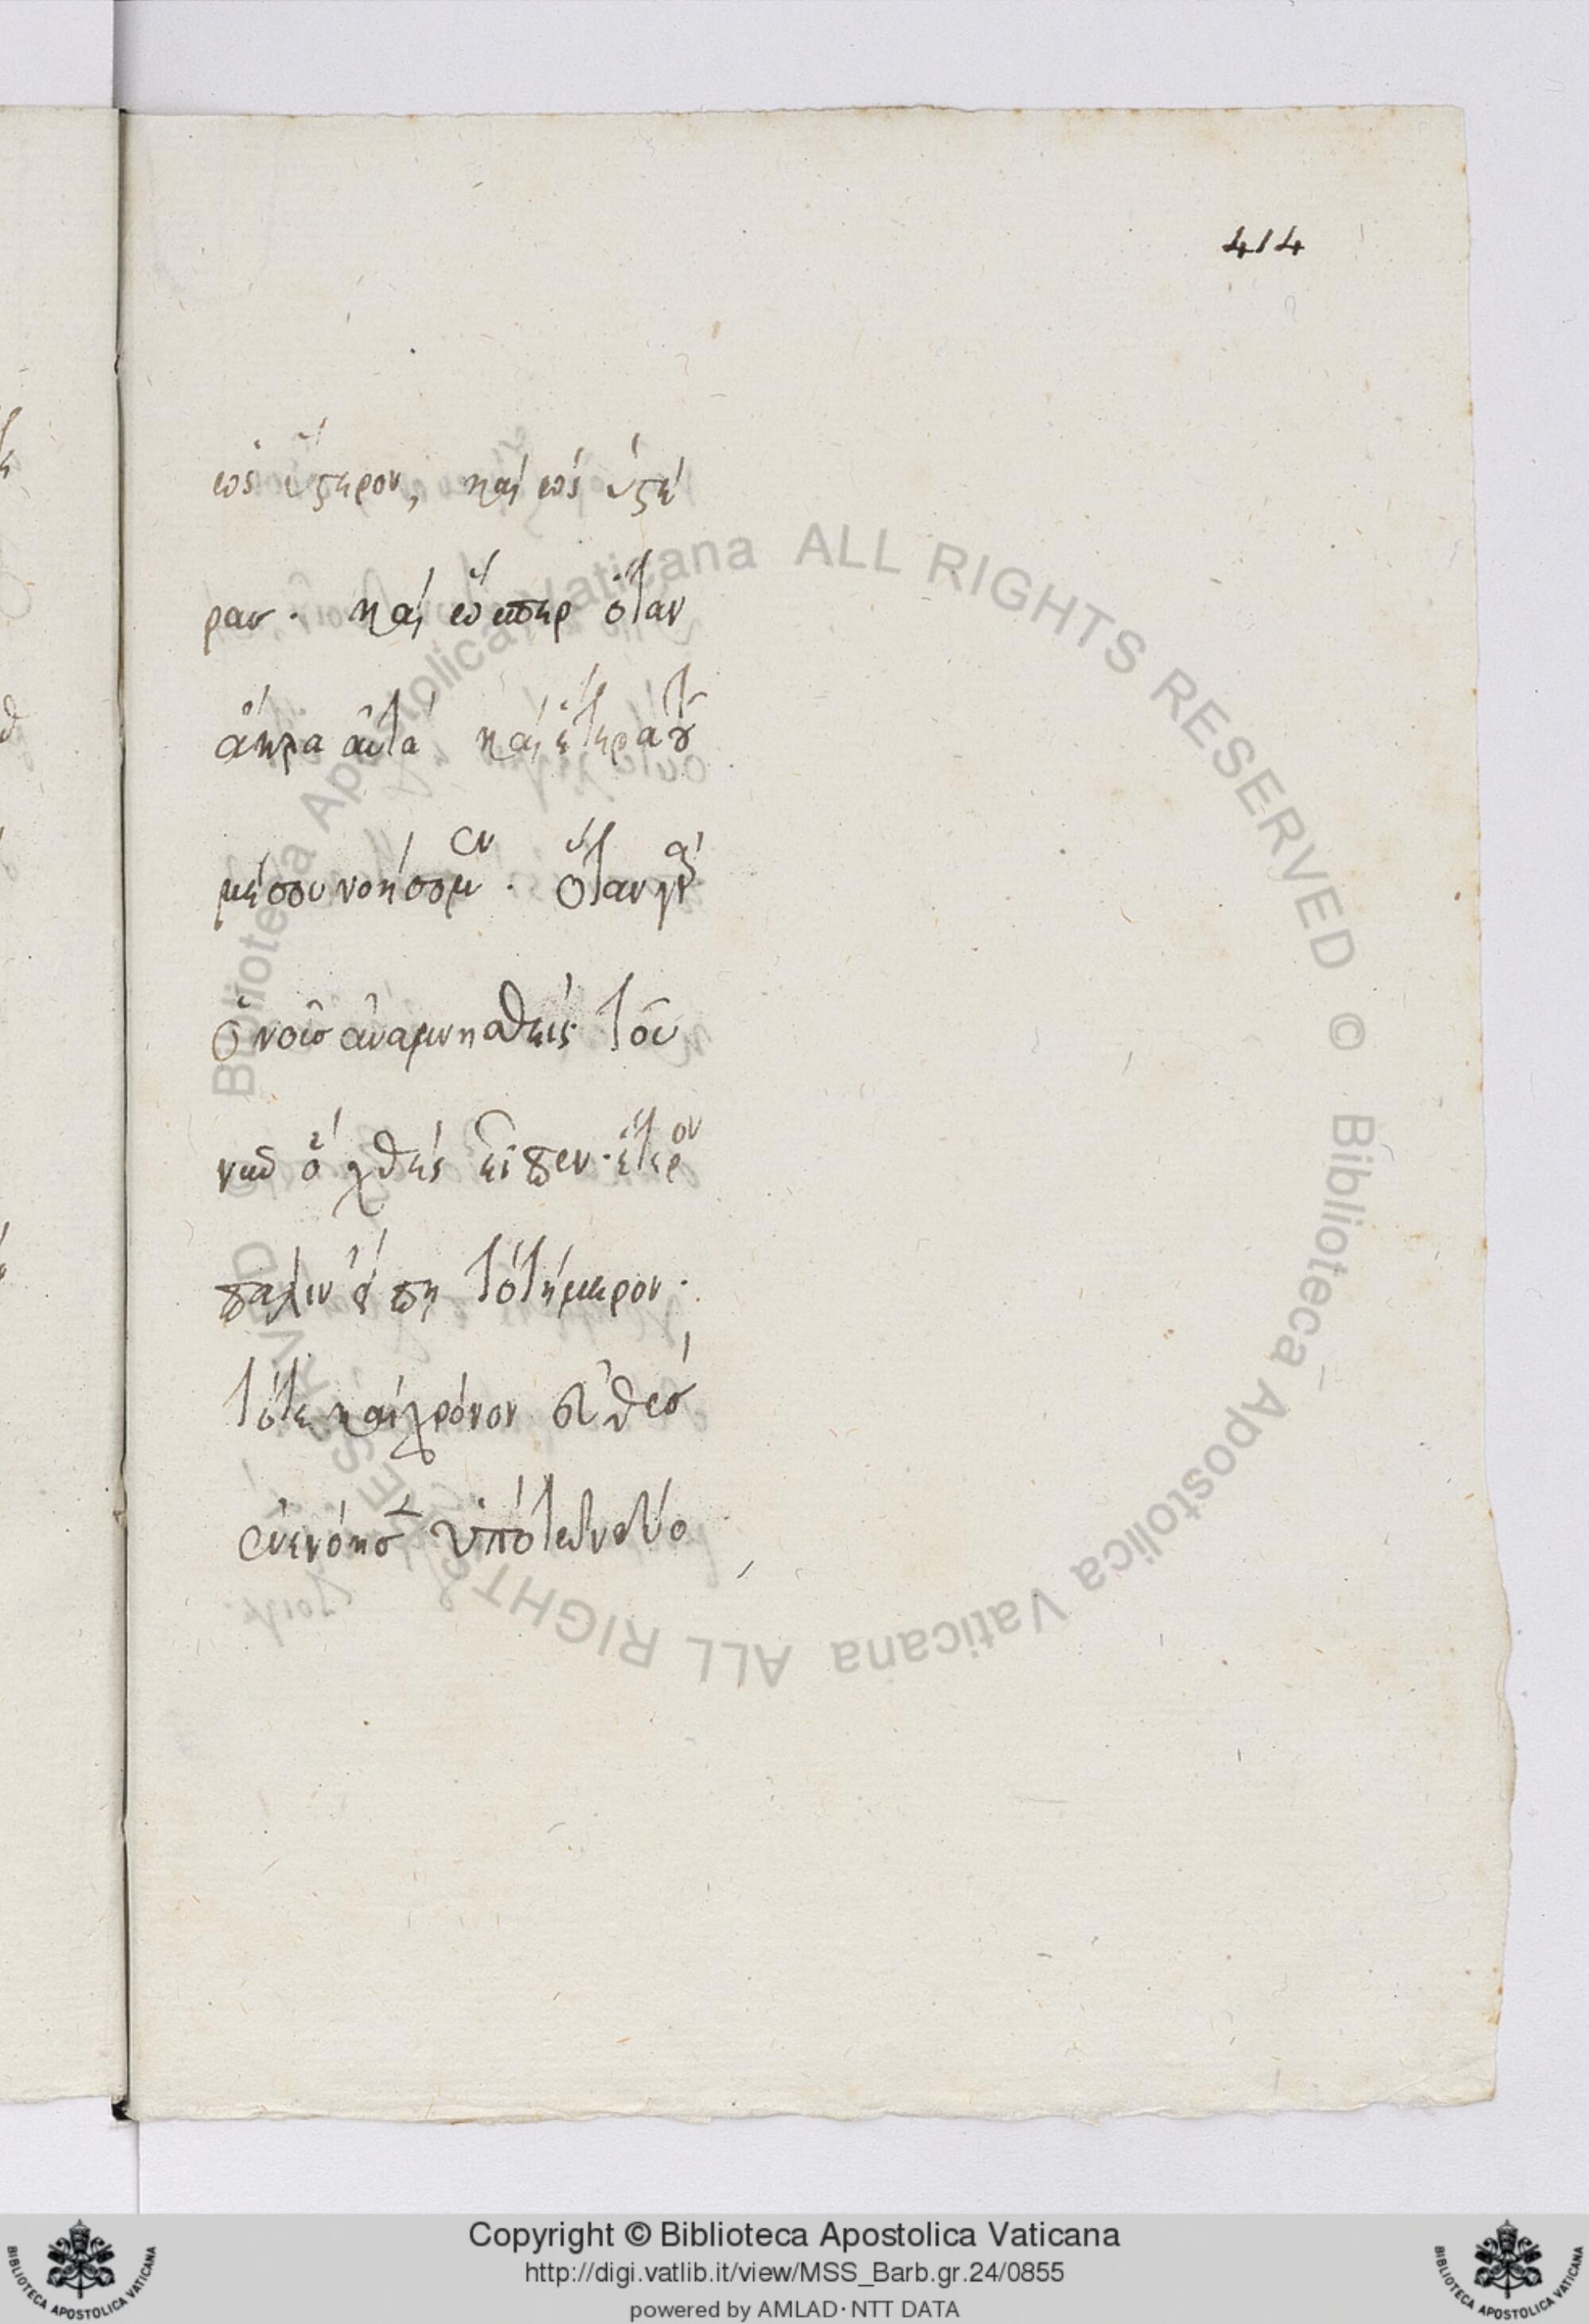 414
ὡς ὕστερον, καὶ ὡς ὑστέ
ραν. καὶ ὥσπερ ὅταν
ἄκρα αὐτὰ καὶ ἕτερα τοῦ
μέσου νοήσωμεν. ὅταν γὰρ
ὁ νοῦς ἀναμνησθεὶς τοῦ
νῦν ὃ χθὲς εἶπεν. ἕτερον
πάλιν εἴπῃ τὸ τήμερον.
τότε καὶ χρόνον εὐθὺς
ἐνενόησεν ὑπὸ τῶν δύο
Biblioteca Apostolica Vaticana ALL RIGHTS RESERVED ©
Biblioteca Apostolica Vaticana ALL RIGHTS RESERVED ©
Copyright © Biblioteca Apostolica Vaticana
http://digi.vatlib.it/view/MSS_Barb.gr.24/0855
powered by AMLAD·NTT DATA
BIBLIOTECA APOSTOLICA VATICANA
BIBLIOTECA APOSTOLICA VATICANA